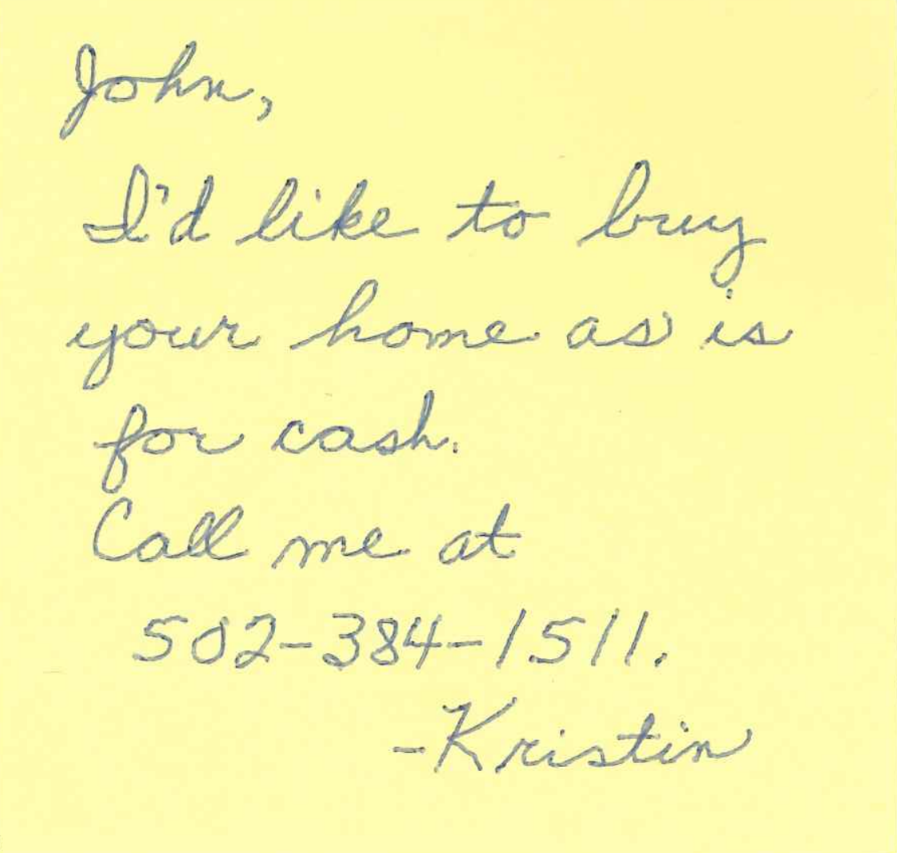 John,
I'd like to buy
your home as is
for cash.
Call me at
502-384-1511.
-Kristin